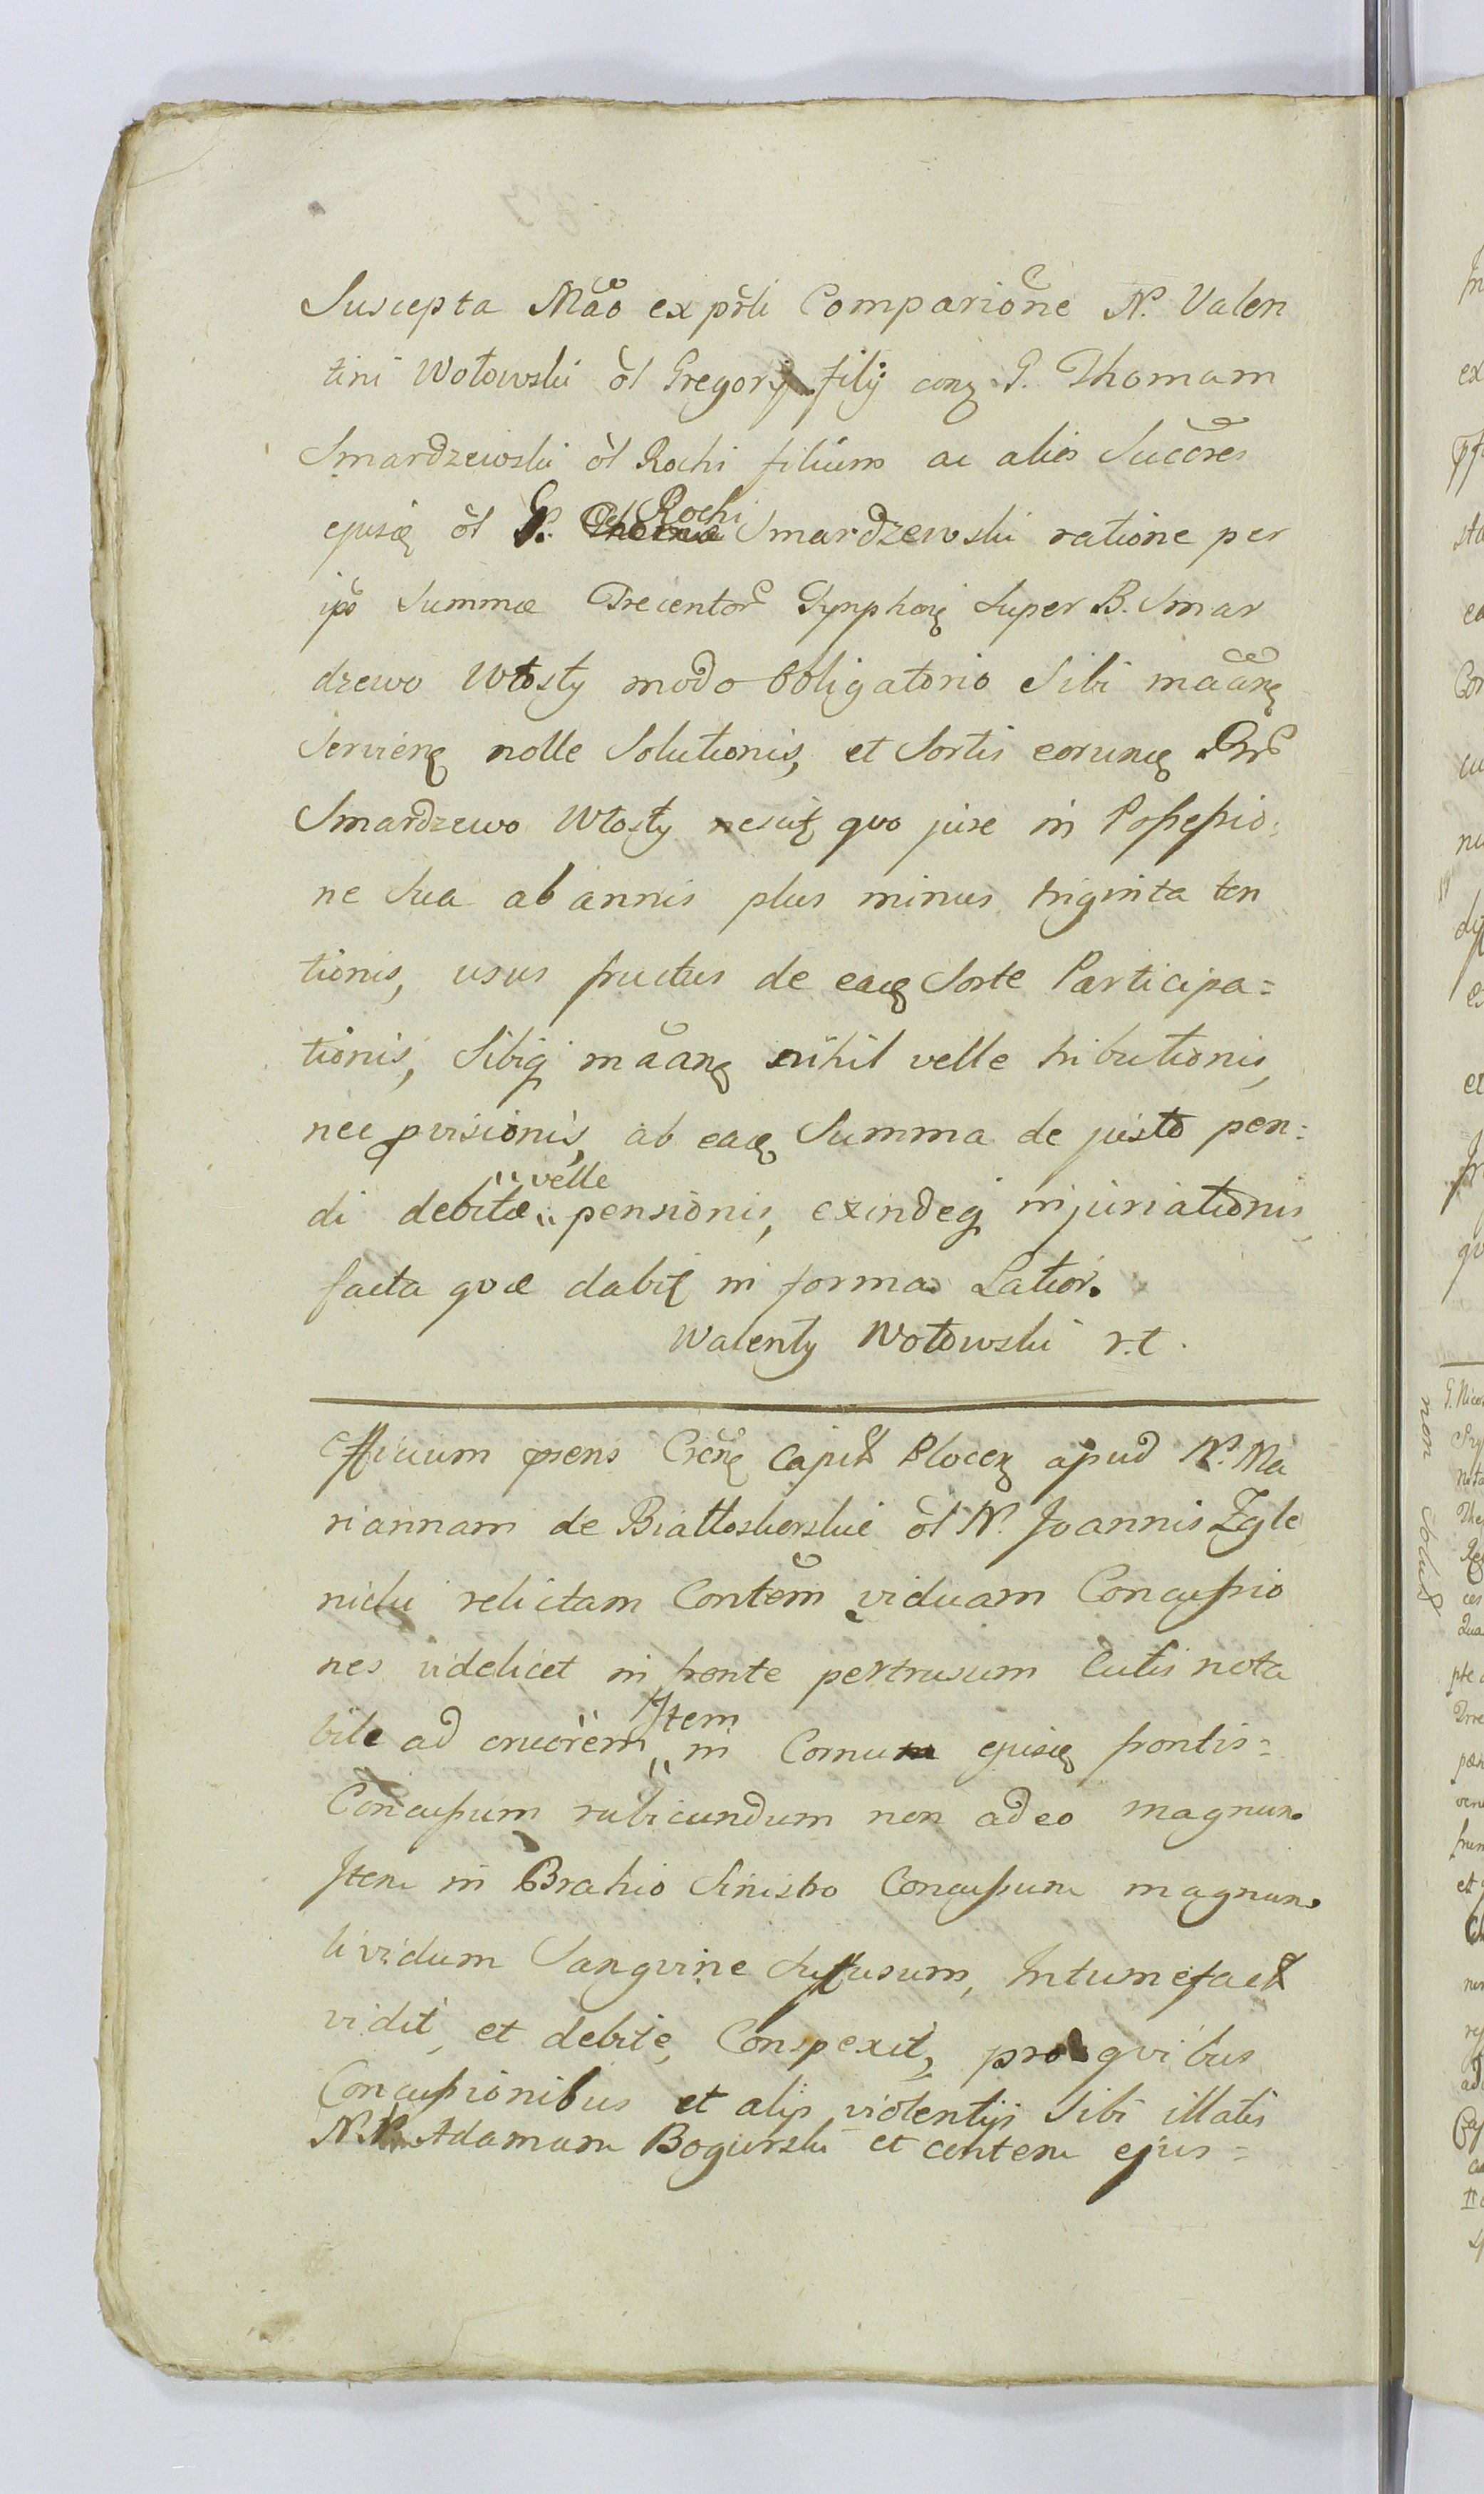 Suscepta Mão ex přli Comparioñe N. Valen
tini Wołowski ol Gregorij filij conz G. Thomam
Smardzewski ol Rochi filium ac alios Succres
ejusq ol G. ol Rochi Smardzewski ratione per
ipõ Summæ Trecentor Tynphonz Super B. Smar
dzewo Włosty modo obligatorio Sibi maãnz
Servienz nolle Solutionis, et Sortis eorunq
Smardzewo Włosty nescitz quo jure in Possessio:
ne Sua ab annis plus minus triginta ten
tionis, usus fructus de eaqz Sorte Participa=
tionis, Sibiq maanz nihil velle tributionis,
nec pvisionis, ab eaqz Summa de justo pen:
di debitæ velle pensionis, exindeq injuriationis,
facta quæ dabitz in forma Latior.
Walenty Wołowski r.t.
Officium prens Crenz Capit Plocenz apud N. Ma
riannam de Białłoskorskie ol N. Joannis Zgle
nicki relictam Contem viduam Concussio
nes videlicet in fronte pertrusum Cutis nota
bile ad cruorem, Item in Cornu ejusqz frontis=
Concussum rubicundum non adeo magnum.
Item in Brahio Sinistro Concussum magnum.
lividum Sanguine Suffusum, Intumefact
vidit, et debite, Conspexit, pro quibus
Concussionibus et alijs violentijs Sibi illatis
N.N. Adamum Bogurski et contem ejus=
non solut